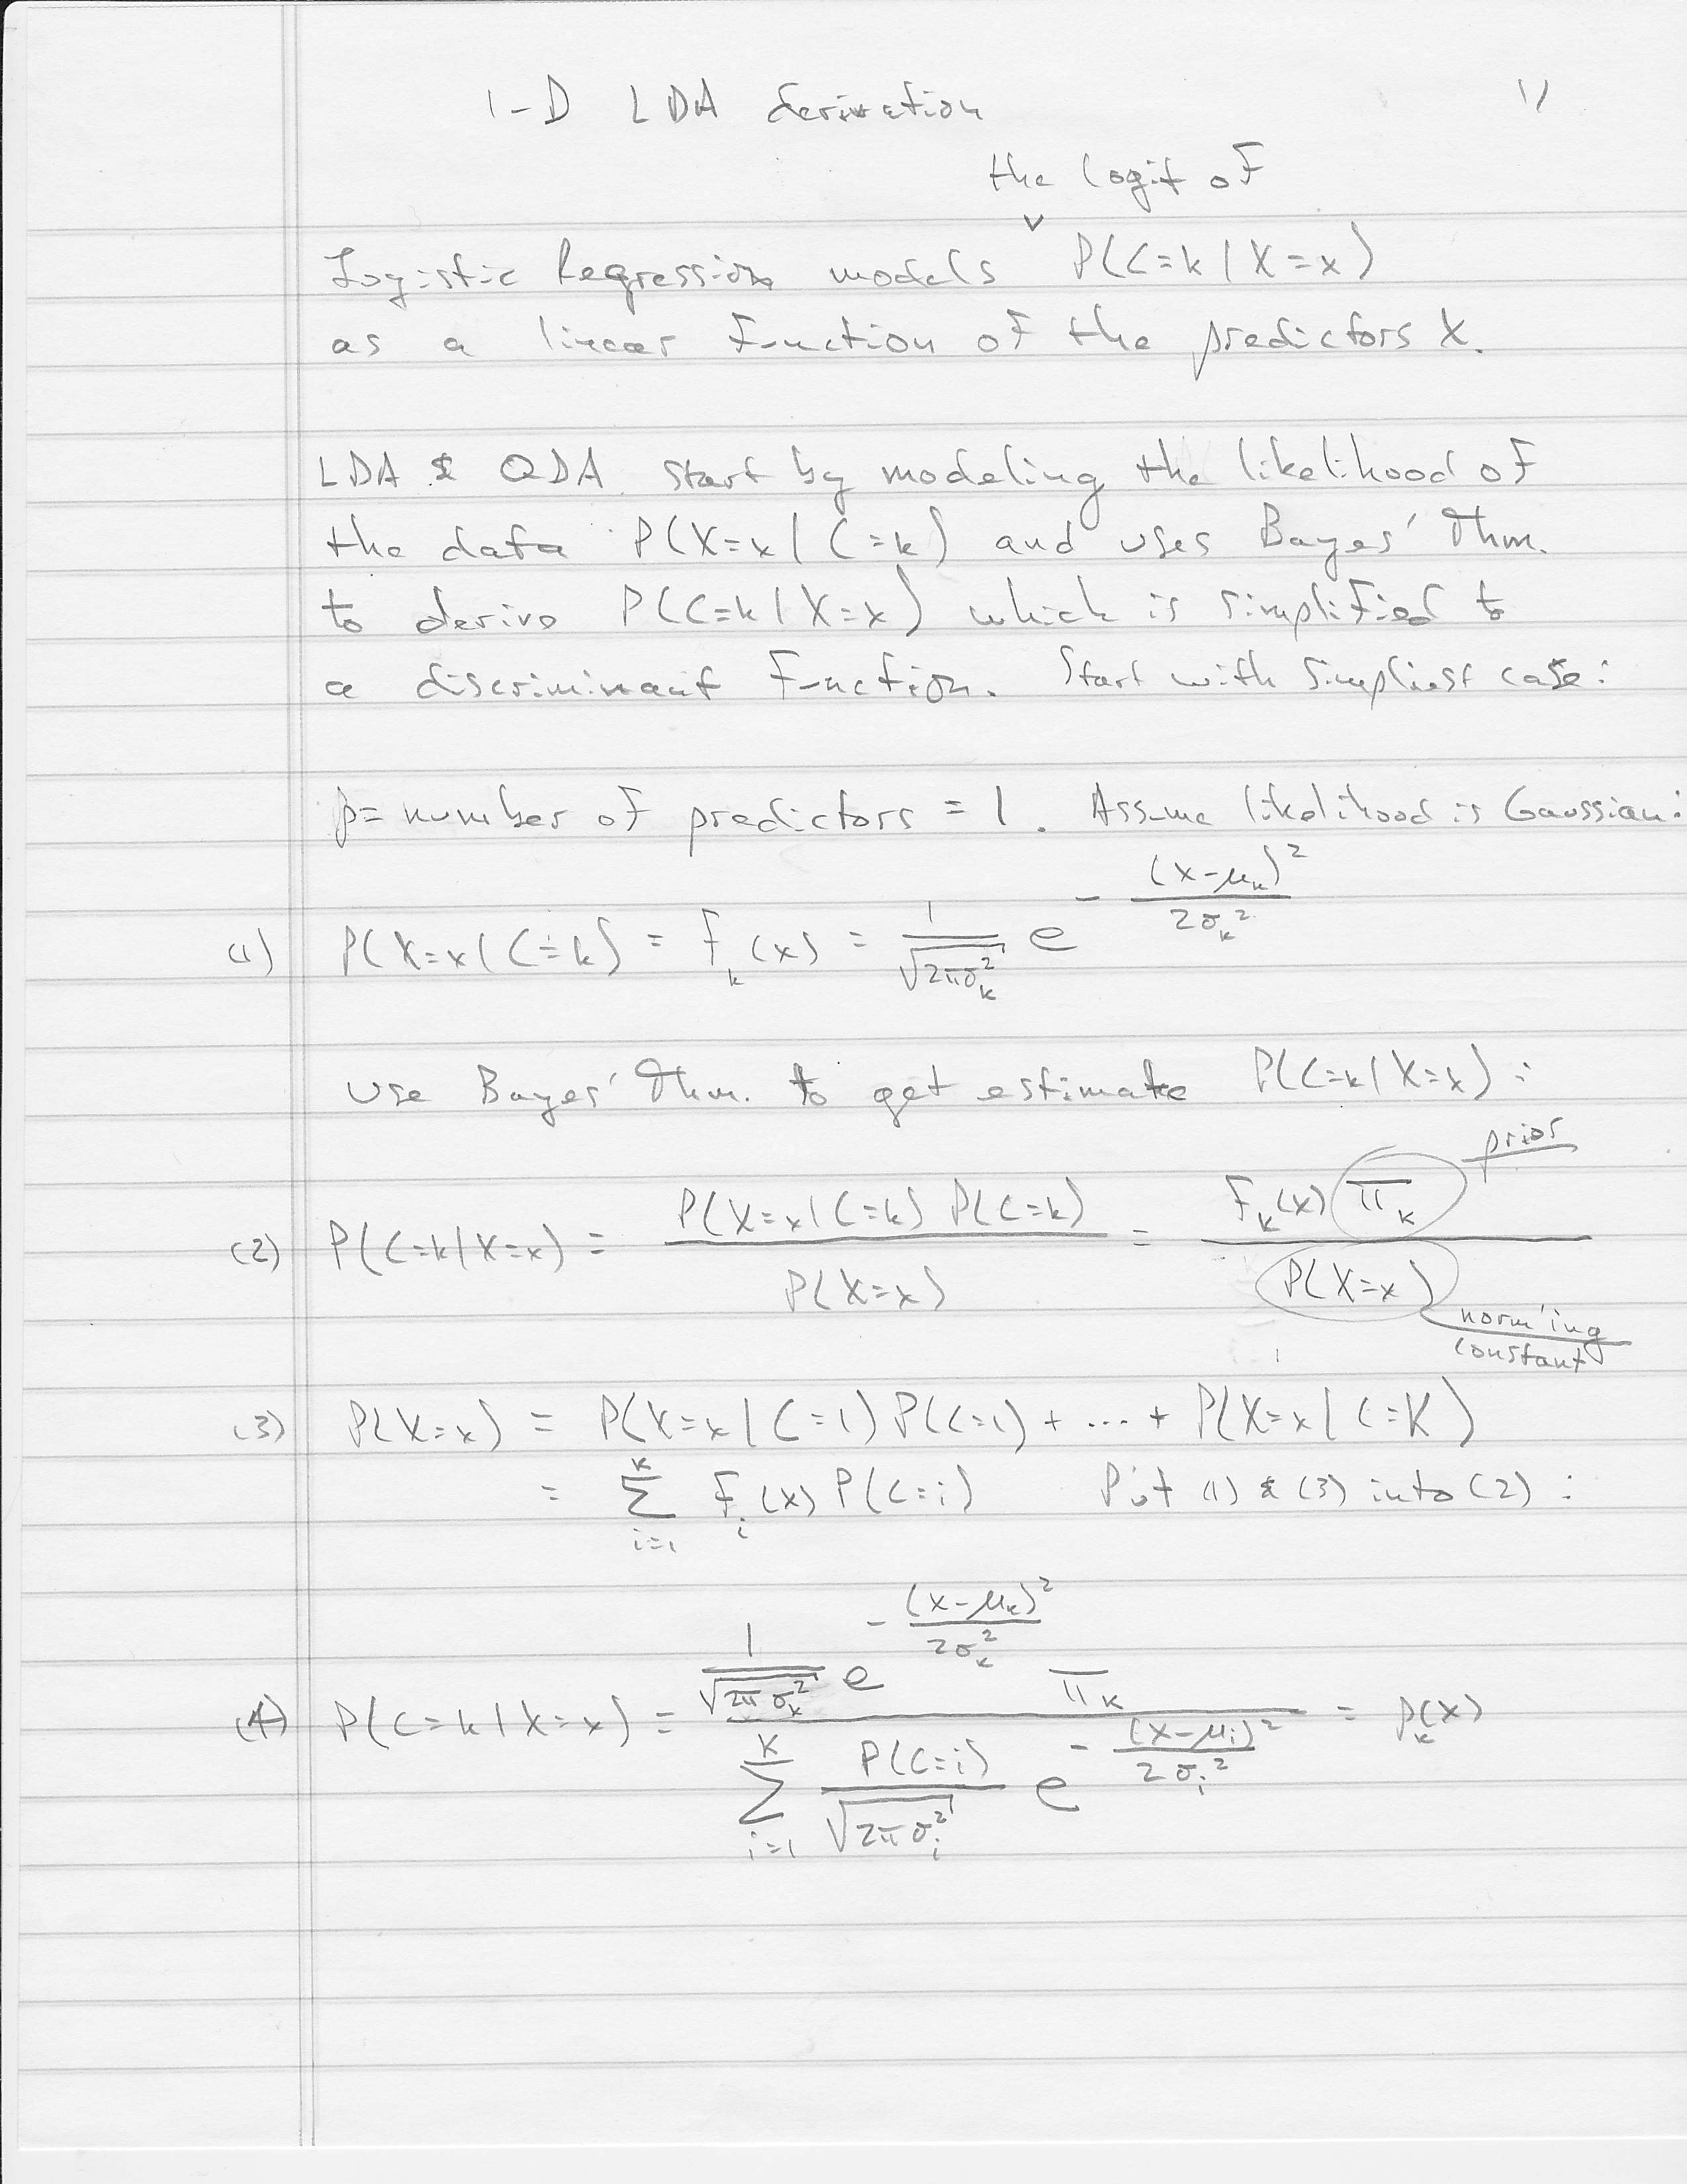 1-D LDA derivation 1)
the logit of
Logistic Regression models ∨ P(C=k | X=x)
as a linear function of the predictors X.
LDA & QDA start by modeling the likelihood of
the data P(X=x | C=k) and uses Bayes' Thm.
to derive P(C=k | X=x) which is simplified to
a discriminant function. Start with simpliest case:
p = number of predictors = 1. Assume likelihood is Gaussian:
(1) P(X=x | C=k) = f_k(x) = 1/√(2πσ_k²) e^(-(x-μ_k)²/(2σ_k²))
Use Bayes' Thm. to get estimate P(C=k | X=x) :
prior
(2) P(C=k | X=x) = P(X=x | C=k) P(C=k) / P(X=x) = f_k(x) π_k / P(X=x)
norm'ing
constant
(3) P(X=x) = P(X=x | C=1) P(C=1) + ... + P(X=x | C=K)
= Σ_{i=1}^{K} f_i(x) P(C=i) Put (1) & (3) into (2) :
(4) P(C=k | X=x) = [1/√(2πσ_k²) e^(-(x-μ_k)²/(2σ_k²)) π_k] / [Σ_{i=1}^{K} P(C=i)/√(2πσ_i²) e^(-(x-μ_i)²/(2σ_i²))] = p_k(x)